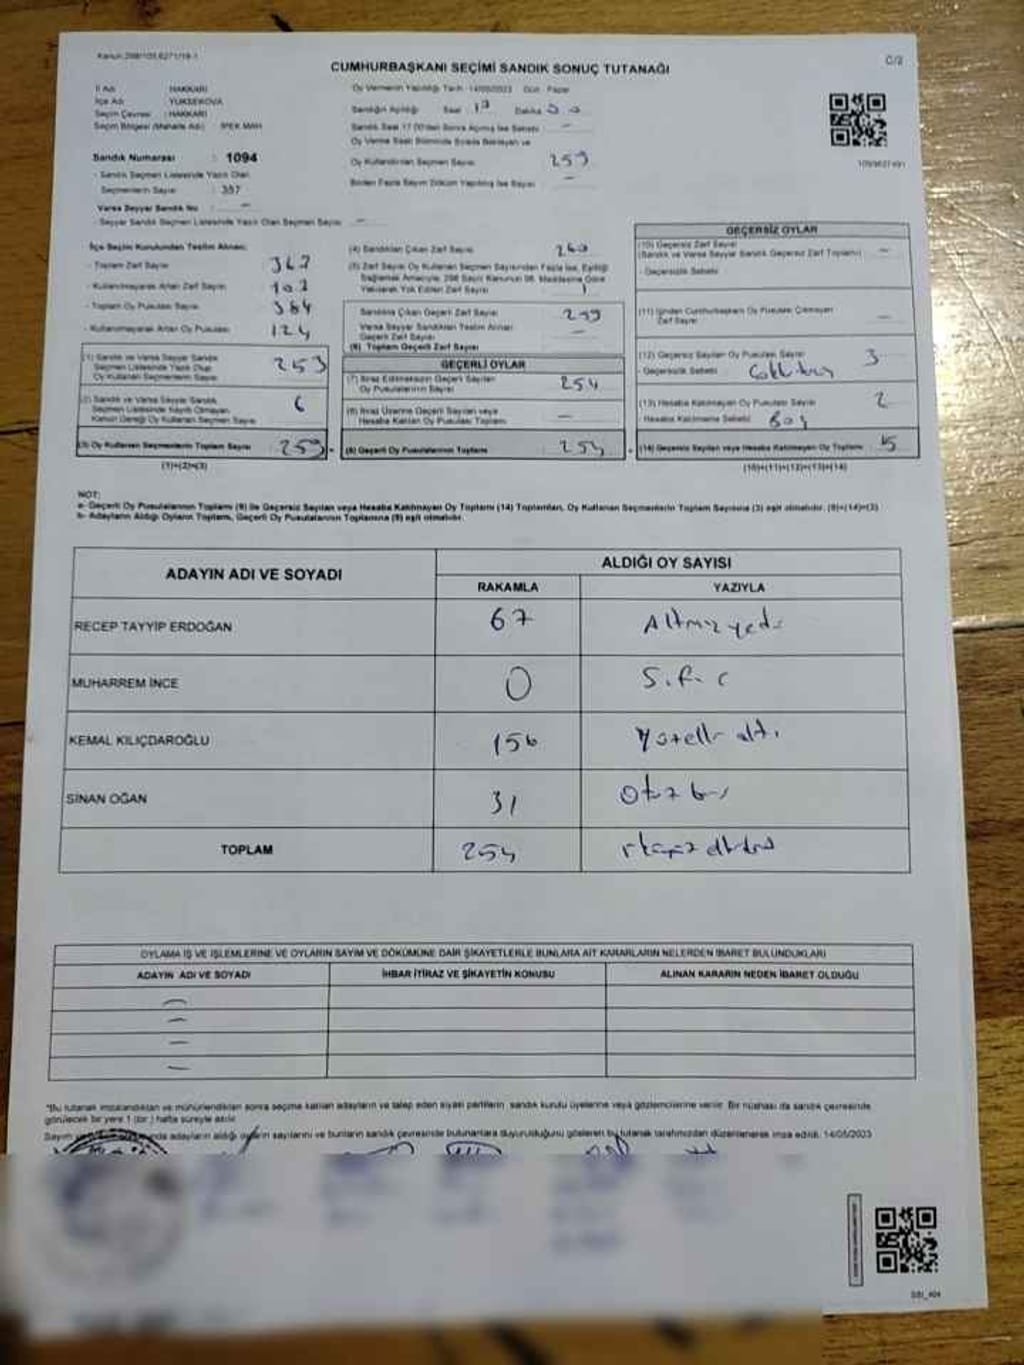 CUMHURBAŞKANI SEÇİMİ SANDIK SONUÇ TUTANAĞI
C/2
İl Adı HAKKARİ
İlçe Adı YÜKSEKOVA
Seçim Çevresi : HAKKARİ
Seçim Bölgesi (Mahalle Adı) İPEK MAH
Sandık Numarası : 1094
- Sandık Seçmen Listesinde Yazılı Olan
Seçmenlerin Sayısı : 357
Varsa Seyyar Sandık No : -
- Seyyar Sandık Seçmen Listesinde Yazılı Olan Seçmen Sayısı -
Oy Vermenin Yapıldığı Tarih : 14/05/2023 Gün : Pazar
Sandığın Açıldığı Saat 17 Dakika
Oy Kullandırılan Seçmen Sayısı 259
Birden Fazla Sayım Döküm Yapılmış İse Sayısı -
İlçe Seçim Kurulundan Teslim Alınan:
- Toplam Zarf Sayısı
- Kullanılmayarak Artan Zarf Sayısı
- Toplam Oy Pusulası Sayısı 384
- Kullanılmayarak Artan Oy Pusulası 124
(1) Sandık ve Varsa Seyyar Sandık
Seçmen Listesinde Yazılı Olup
Oy Kullanan Seçmenlerin Sayısı 253
(2) Sandık ve Varsa Seyyar Sandık
Seçmen Listesinde Kayıtlı Olmayan
Kanun Gereği Oy Kullanan Seçmen Sayısı 6
(3) Oy Kullanan Seçmenlerin Toplam Sayısı 259
(1)+(2)=(3)
(4) Sandıktan Çıkan Zarf Sayısı 260
(5) Zarf Sayısı Oy Kullanan Seçmen Sayısından Fazla İse, Eşitliği
Sağlamak Amacıyla, 298 Sayılı Kanunun 98. Maddesine Göre
Yakılarak Yok Edilen Zarf Sayısı 1
Sandıkta Çıkan Geçerli Zarf Sayısı 259
Varsa Seyyar Sandıktan Teslim Alınan
Geçerli Zarf Sayısı -
(6) Toplam Geçerli Zarf Sayısı
GEÇERLİ OYLAR
(7) İtiraz Edilmeksizin Geçerli Sayılan
Oy Pusulalarının Sayısı 254
(8) İtiraz Üzerine Geçerli Sayılan veya
Hesaba Katılan Oy Pusulası Toplamı -
(9) Geçerli Oy Pusulalarının Toplamı 254
GEÇERSİZ OYLAR
(10) Geçersiz Zarf Sayısı
(Sandık ve Varsa Seyyar Sandık Geçersiz Zarf Toplamı) -
- Geçersizlik Sebebi:
(11) İçinden Cumhurbaşkanı Oy Pusulası Çıkmayan
Zarf Sayısı -
(12) Geçersiz Sayılan Oy Pusulası Sayısı 3
- Geçersizlik Sebebi:
(13) Hesaba Katılmayan Oy Pusulası Sayısı 2
- Hesaba Katılmama Sebebi: Boş
(14) Geçersiz Sayılan veya Hesaba Katılmayan Oy Toplamı 5
(10)+(11)+(12)+(13)=(14)
NOT:
a- Geçerli Oy Pusulalarının Toplamı (9) ile Geçersiz Sayılan veya Hesaba Katılmayan Oy Toplamı (14) Toplamları, Oy Kullanan Seçmenlerin Toplam Sayısına (3) eşit olmalıdır. (9)+(14)=(3)
b- Adayların Aldığı Oyların Toplamı, Geçerli Oy Pusulalarının Toplamına (9) eşit olmalıdır.
ADAYIN ADI VE SOYADI ALDIĞI OY SAYISI
RAKAMLA YAZIYLA
RECEP TAYYİP ERDOĞAN 67 Altmışyedi
MUHARREM İNCE 0 Sıfır
KEMAL KILIÇDAROĞLU 156 Yüzelli altı
SİNAN OĞAN 31 Otuz bir
TOPLAM 254
OYLAMA İŞ VE İŞLEMLERİNE VE OYLARIN SAYIM VE DÖKÜMÜNE DAİR ŞİKAYETLERLE BUNLARA AİT KARARLARIN NELERDEN İBARET BULUNDUKLARI
ADAYIN ADI VE SOYADI İHBAR İTİRAZ VE ŞİKAYETİN KONUSU ALINAN KARARIN NEDEN İBARET OLDUĞU
*Bu tutanak imzalandıktan ve mühürlendikten sonra seçime katılan adayların ve talep eden siyasi partilerin sandık kurulu üyelerine veya gözlemcilerine verilir. Bir nüshası da sandık çevresinde
görülecek bir yere 1 (bir) hafta süreyle asılır.
adayların aldığı oyların sayılarını ve bunların sandık çevresinde bulunanlara duyurulduğunu gösteren bu tutanak tarafımızdan düzenlenerek imza edildi. 14/05/2023